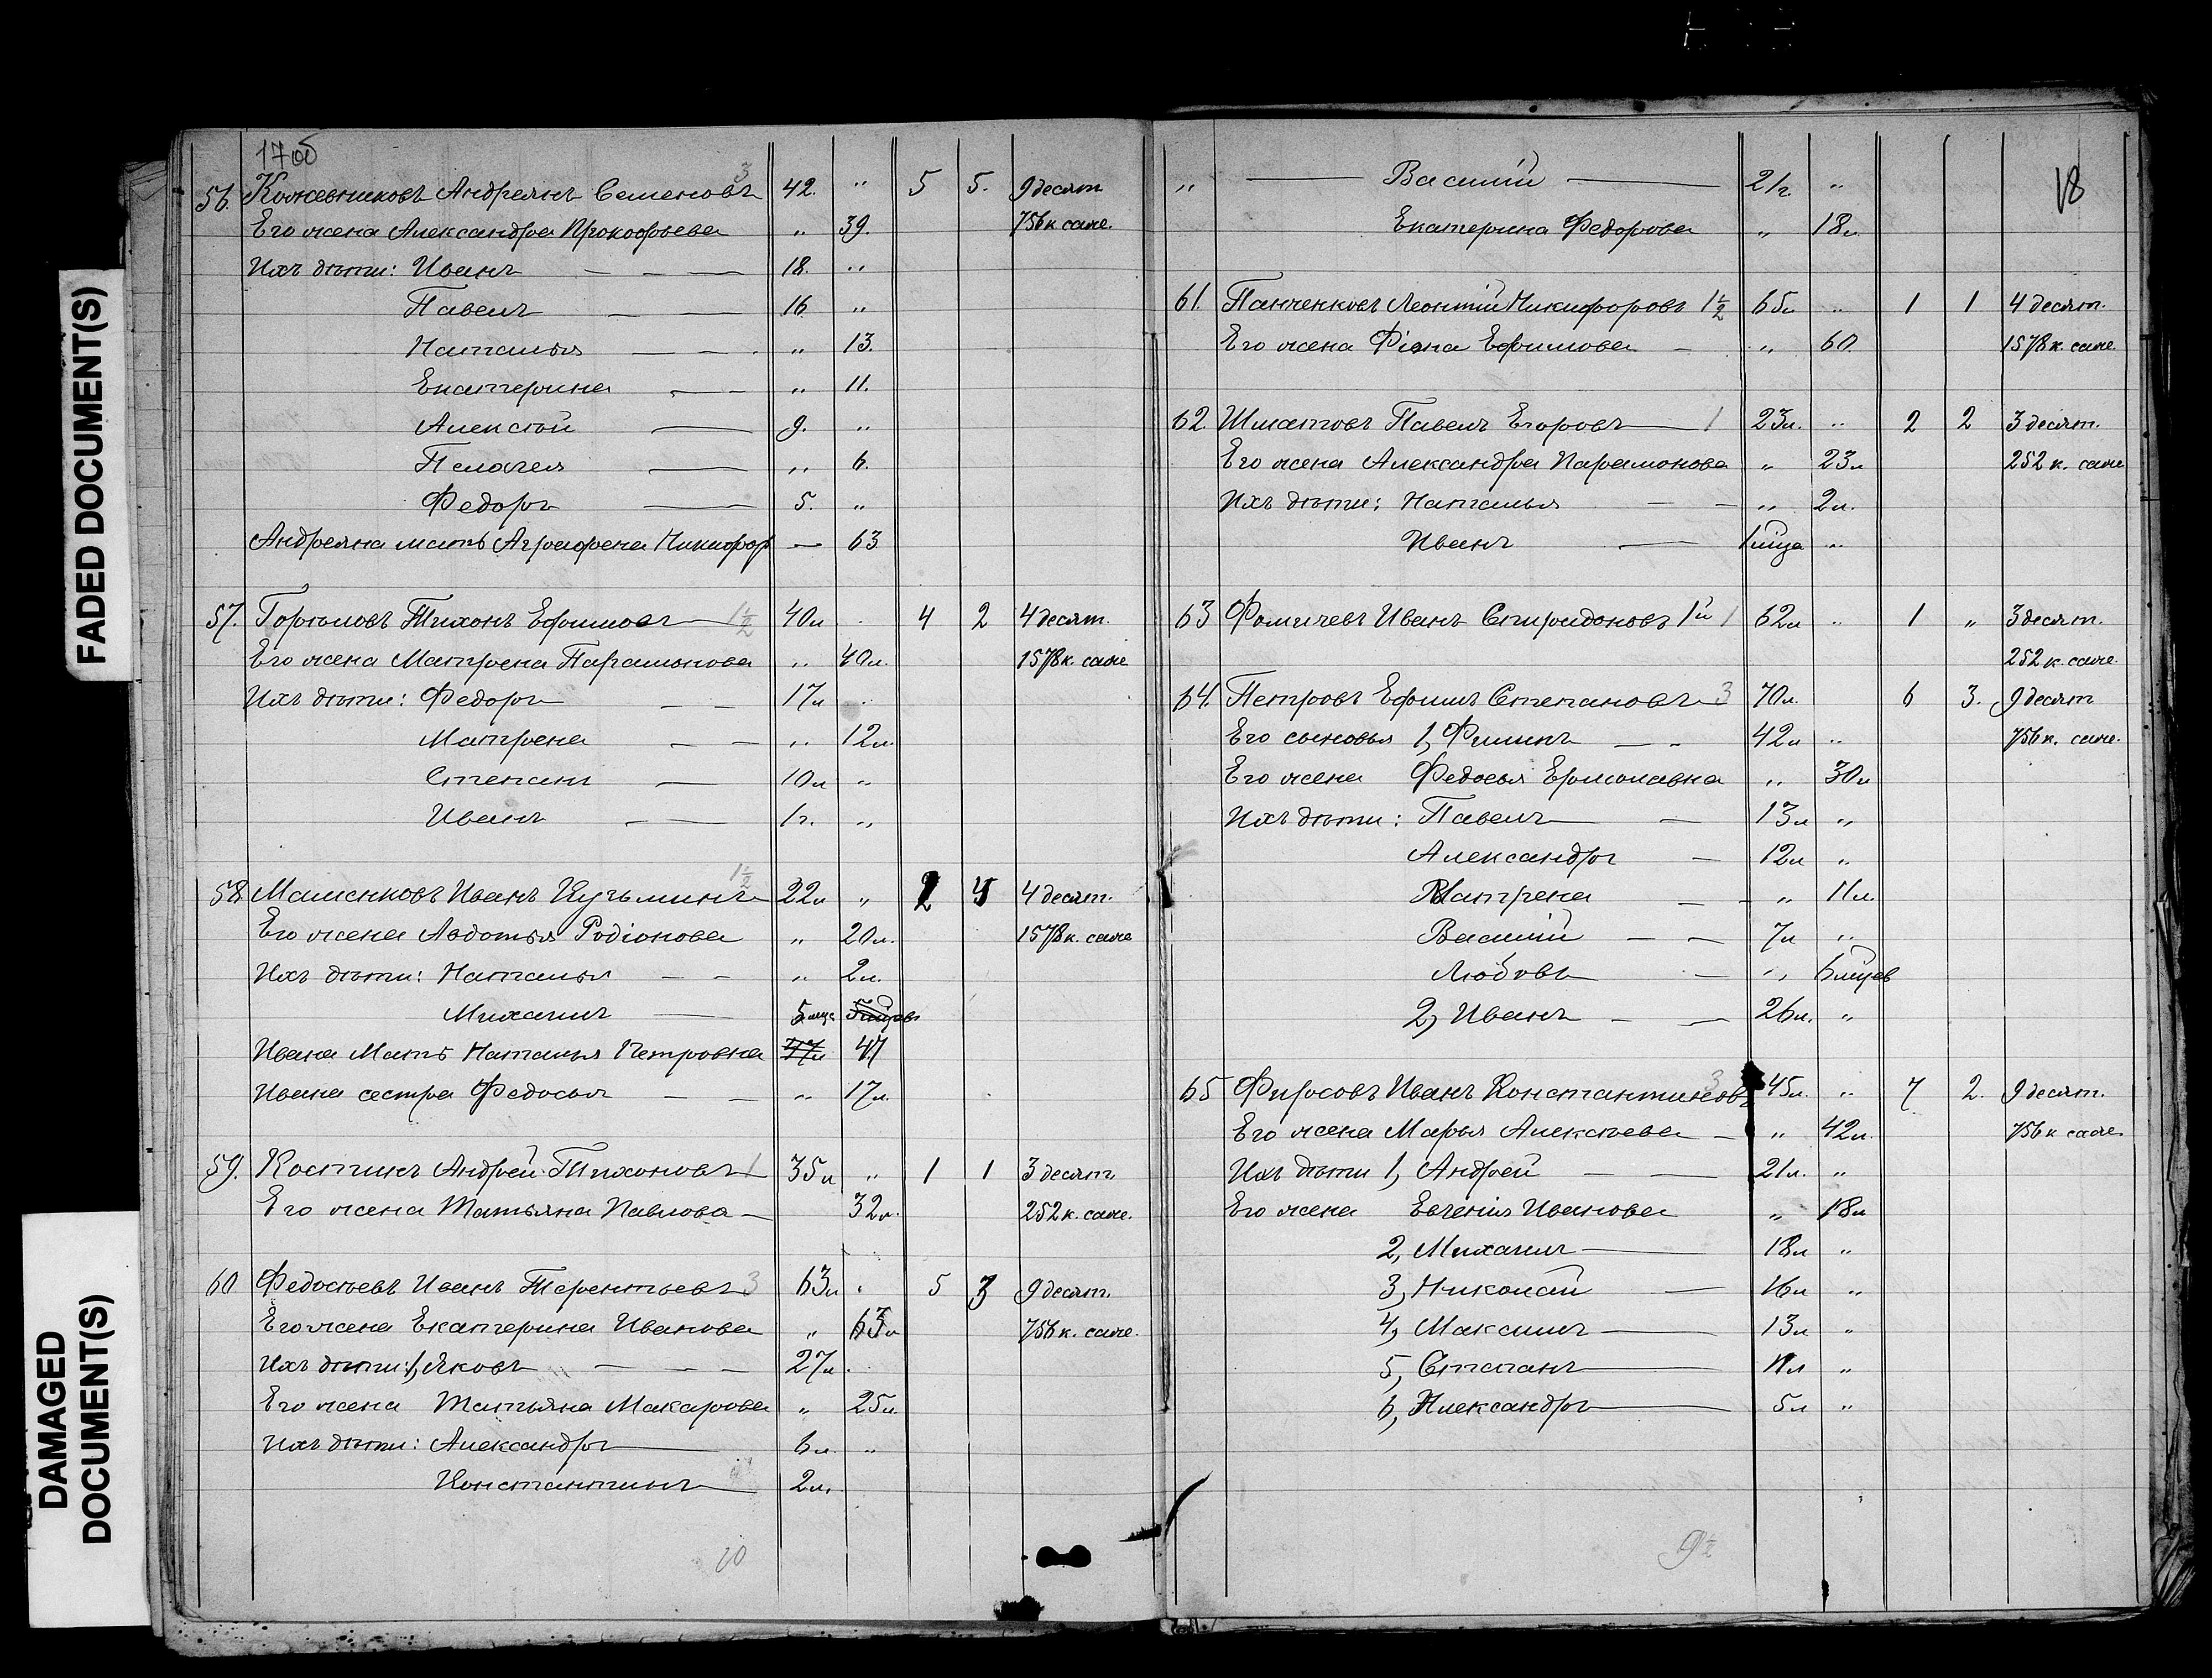 FADED DOCUMENT(S)
DAMAGED
DOCUMENT(S)
17об
56. Кожевниковъ Андреянъ Семеновъ 3 42. " 5 5. 9 десят.
Его жена Александра Прокофьева " 39. 756 к. саже.
Ихъ дѣти: Иванъ — — — 18. "
Павелъ — — 16 "
Наталья — — " 13.
Екатерина — - " 11.
Алексѣй — 9. "
Пелагея — " 6.
Федоръ — 5. "
Андреяна мать Аграфена Никифор — 63
57. Горюновъ Тихонъ Ефимовъ 1½ 40л . 4 2 4 десят.
Его жена Матрена Парамонова " 40л. 1578 к. саже
Ихъ дѣти: Федоръ — — 17л "
Матрена — — " 12л.
Степанъ — 10л "
Иванъ - — 1г. "
58. Маленковъ Иванъ Кузьминъ 1½ 22л " 2 4 4 десят.
Его жена Авдотья Родіонова " 20л. 1578 к. саже
Ихъ дѣти: Наталья — - " 2л.
Михаилъ — 5 мца
Ивана Мать Наталья Петровна 47л 47
Ивана сестра Федосья — — " 17л.
59. Костинъ Андрей Тихоновъ 1 35л " 1 1 3 десят.
Его жена Татьяна Павлова — 32л. 252 к. саже.
60 Федосѣевъ Иванъ Терентьевъ 3 63л " 5 3 9 десят.
Его жена Екатерина Иванова " 63л 756 к. саже.
Ихъ дѣти: 1, Яковъ — — — 27л.
Его жена Татьяна Макарова " 25л.
Ихъ дѣти: Александръ — 6л. "
Константинъ — 2л.
10
18
" — Василій — 21г. "
Екатерина Федорова " 18л.
61. Панченковъ Леонтій Никифоровъ 1½ 65л " 1 1 4 десят.
Его жена Фіона Ефимова - " 60. 1578 к. саже.
62. Шматовъ Павелъ Егоровъ — 1 23л. " 2 2 3 десят.
Его жена Александра Парамонова " 23л 252 к. саже
Ихъ дѣти: Наталья — — " 2л.
Иванъ — 1 мца "
63 Фомичевъ Иванъ Спиридоновъ 1й 1 62л " 1 " 3 десят.
252 к. саже.
64. Петровъ Ефимъ Степановъ 3 70л. 6 3. 9 десят
Его сыновья 1, Филипъ — - 42л " 756 к. саже.
Его жена Федосья Ермолавна " 30л
Ихъ дѣти: Павелъ — 13л "
Александръ — 12л "
Матрена — - " 11л.
Василій — — 7л "
Любовь — " 6 мцев
2, Иванъ — — 26л. "
65 Фирсовъ Иванъ Константиновъ 3 45л. " 7 2. 9 десят.
Его жена Марья Алексѣева — " 42л. 756 к саже.
Ихъ дѣти 1, Андрей — — 21л. "
Его жена Евгенія Иванова " 18л
2, Михаилъ — 18л "
3, Николай — 16л "
4, Максимъ — 13л "
5, Степанъ — 11л "
6, Александръ — 5л "
9½